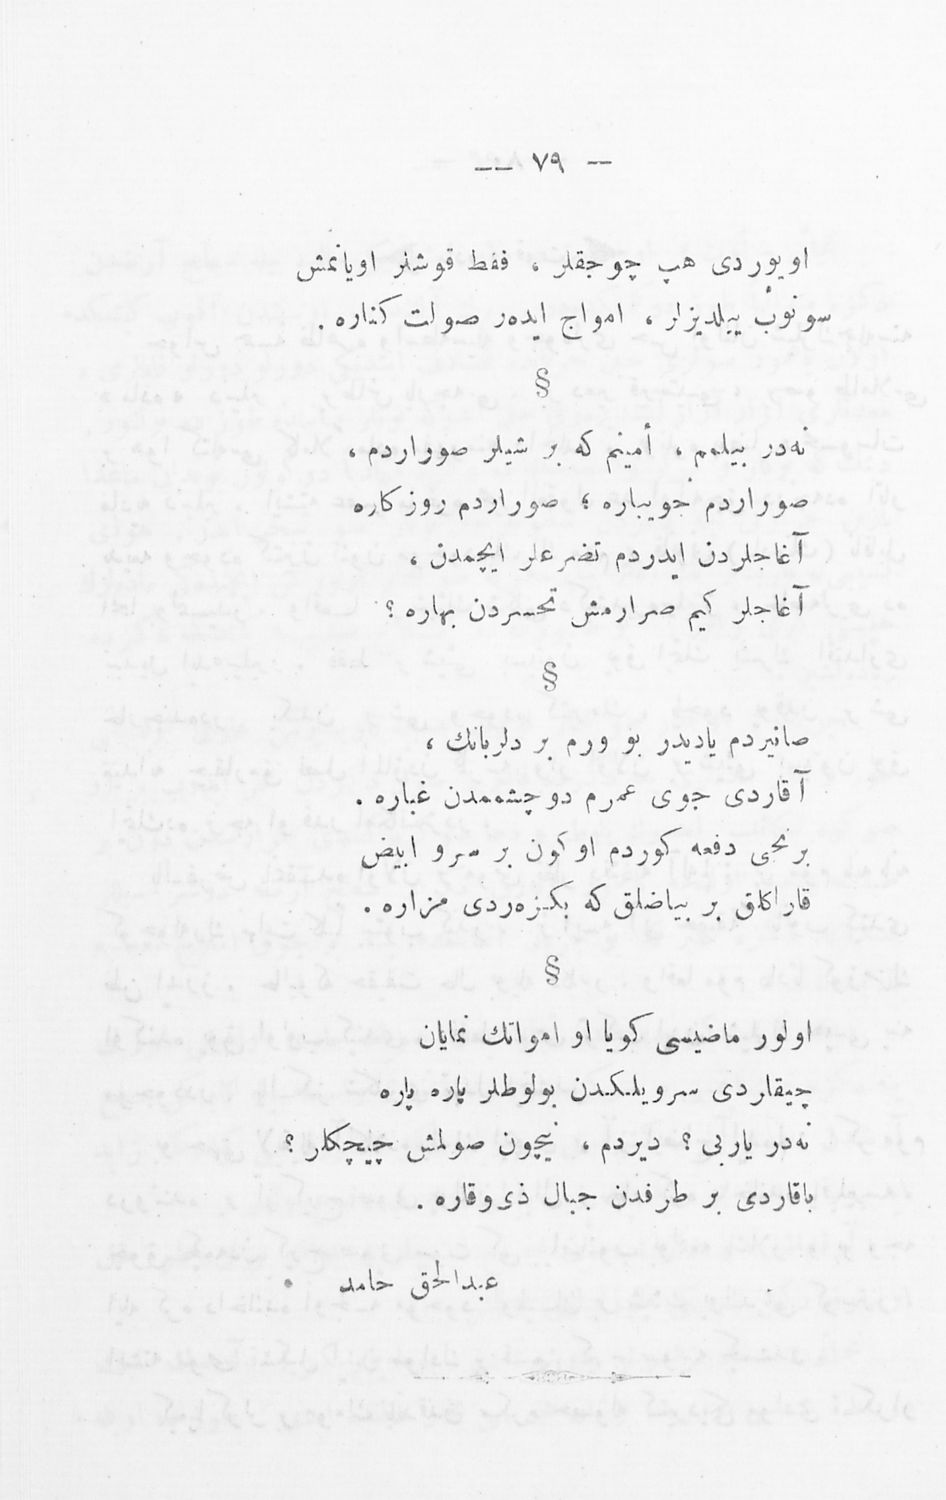 — ٧٩ —
اويوردى هپ چوجقلر ، فقط قوشلر اويانمش
سونوب ييلديزلر ، امواج ايدەر صولت كناره .
§
نەدر بيلمم ، أمينم كه بر شيلر صوراردم ،
صوراردم جويباره ؛ صوراردم روزكاره
آغاجلردن ايدردم تضرعلر ايچمدن ،
آغاجلر كيم صرارمش تحسردن بهاره ؟
§
صانيردم ياديدر بو ورم بر دلربانك ،
آقاردى جوى عمرم دوچشممدن غباره .
برنجى دفعه كوردم اوكون بر سرو ابيض
قاراكلق بر بياضلق كه بكزەردى مزاره .
§
اولور ماضيسى كويا او امواتك نمايان
چيقاردى سرويلكدن بولوطلر پاره پاره
نەدر ياربى ؟ ديردم ، نيچون صولمش چيچكلر ؟
باقاردى بر طرفدن جبال ذى وقاره .
عبدالحق حامد